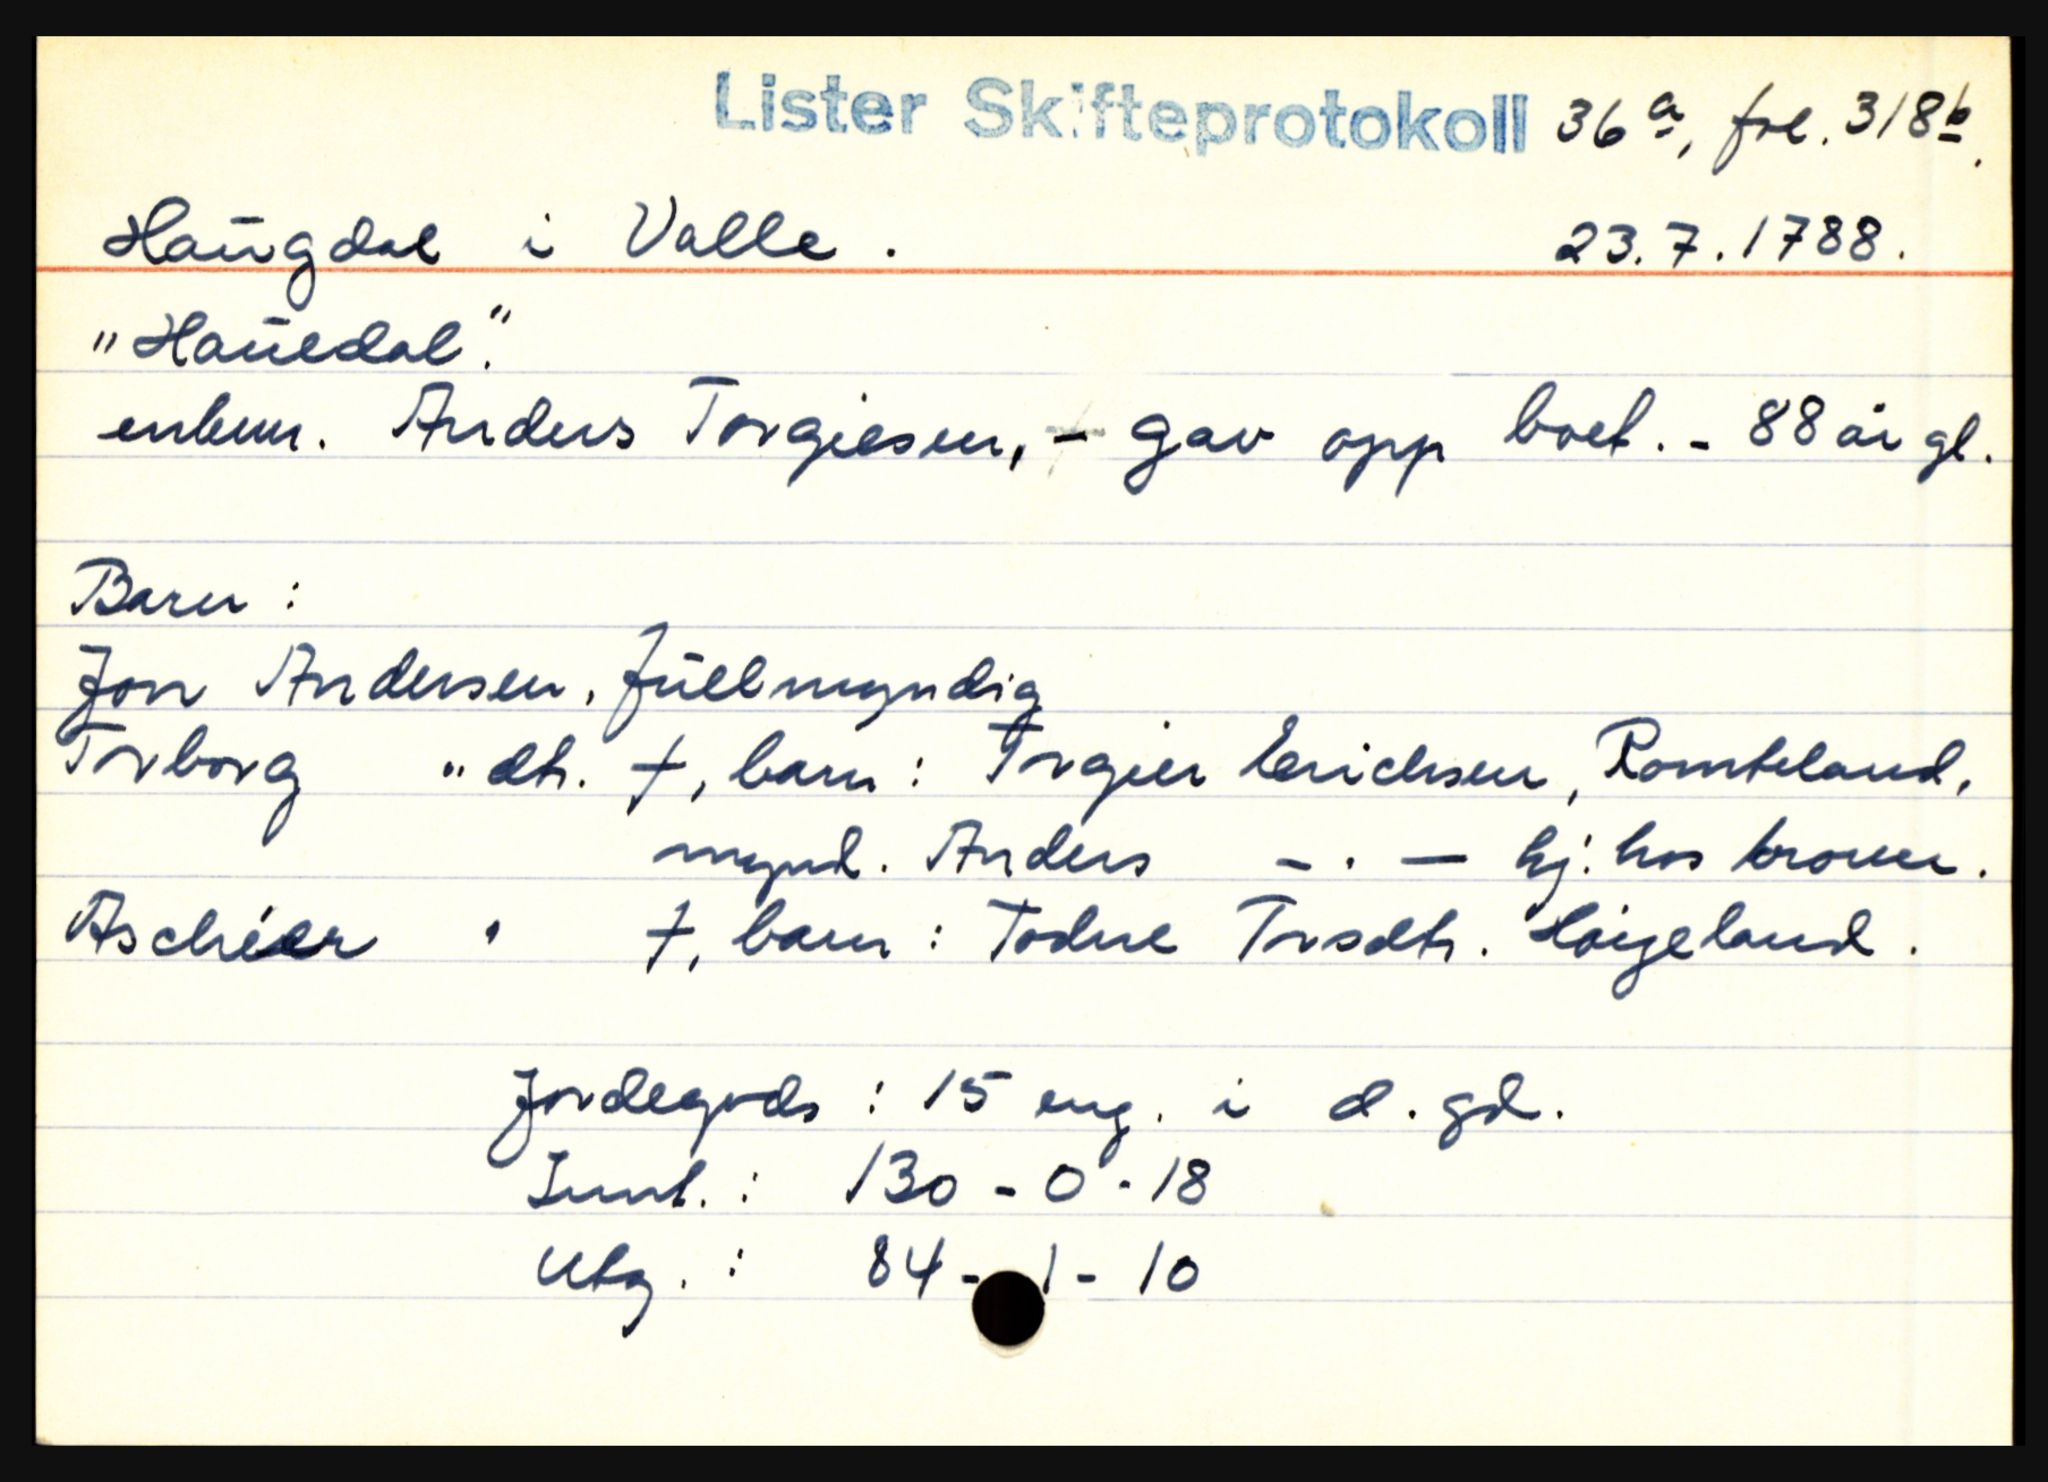 Lister Skifteprotokoll 36 a, fol. 318 b.
Haugdal i Valle. 23.7.1788.
"Hauedal".
enkem. Anders Torgiesen, - gav opp boet. - 88 år gl.
Barn :
Jon Andersen, fullmyndig
Torborg " dtr. †, barn : Torgier Erichsen, Romteland,
mynd. Anders - . - hj: hos broren.
Aschier " †, barn : Todne Torsdtr. Høigeland.
Jordegods : 15 eng. i d. gd.
Innt. : 130 - 0 - 18
Utg. : 84 - 1 - 10